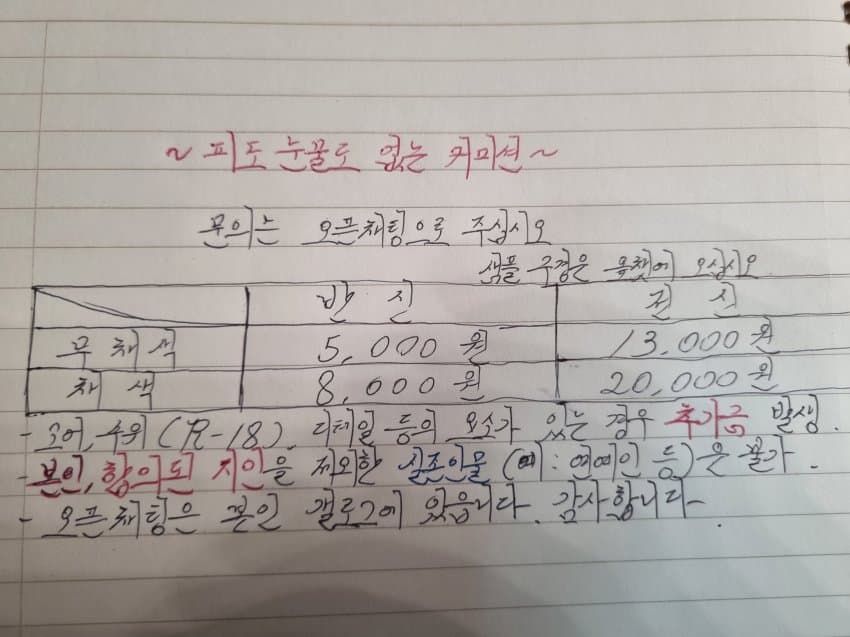 ~ 피도 눈물도 없는 커미션 ~
문의는 오픈채팅으로 주십시오
샘플 구경은 옾챗에 오십시오
반 신 전 신
무 채 색 5,000 원 13,000 원
채 색 8,000 원 20,000 원
- 고어, 수위 (R-18), 디테일 등의 요소가 있는 경우 추가금 발생.
- 본인, 합의된 지인을 제외한 실존인물 (예: 연예인 등)은 불가.
- 오픈채팅은 본인 갤로그에 있습니다. 감사합니다-